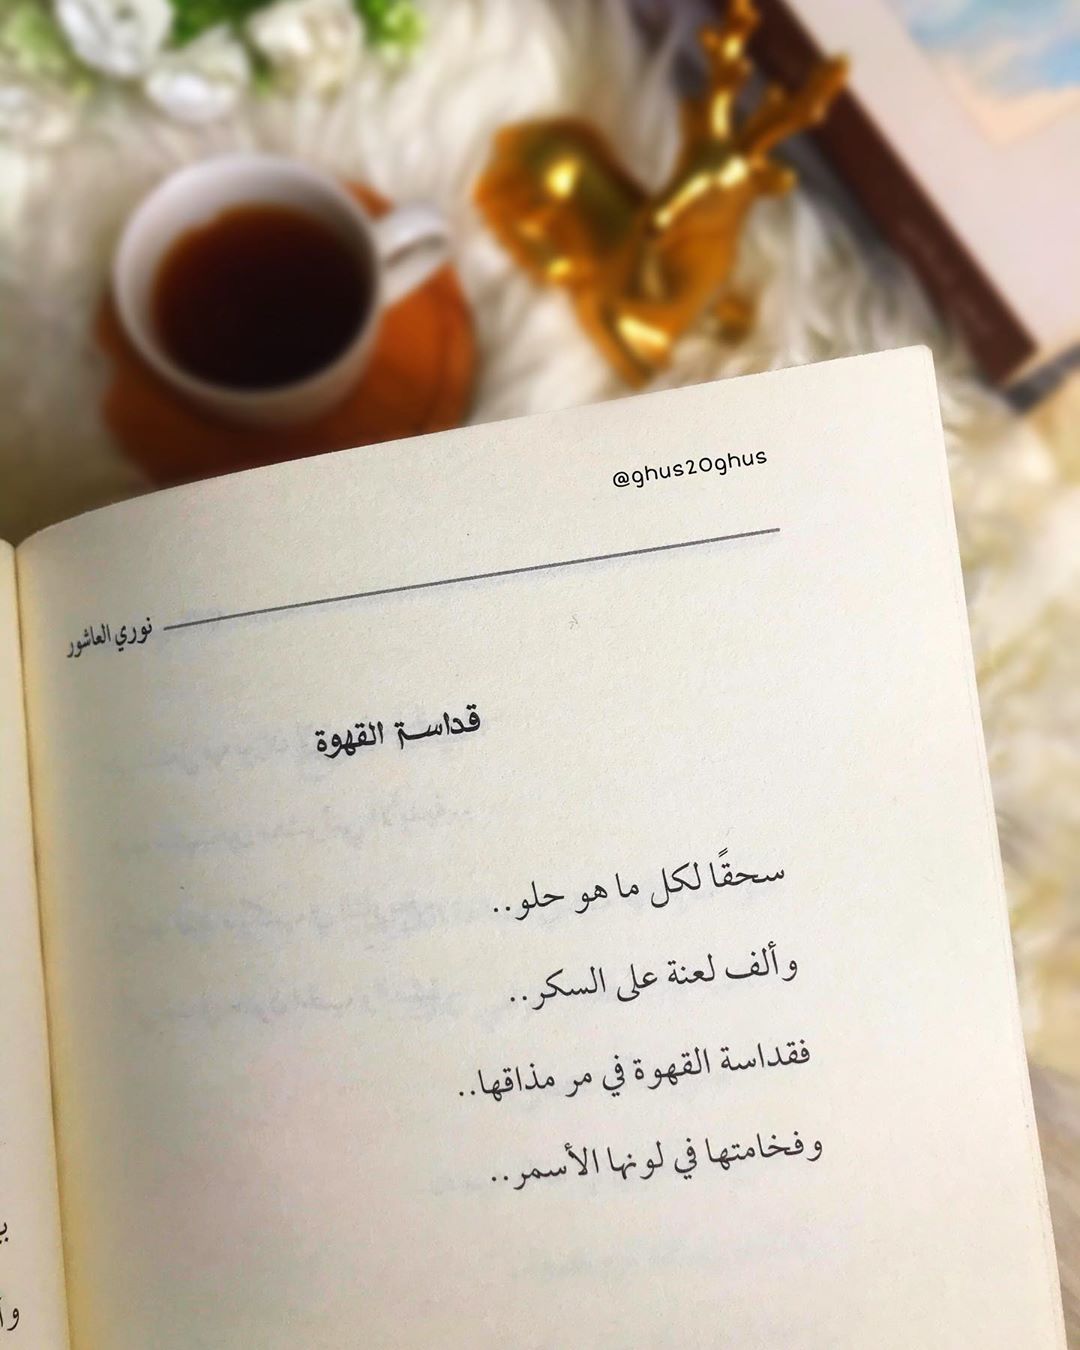 @ghus20ghus
نوري العاشور
قداسة القهوة
سحقًا لكل ما هو حلو..
وألف لعنة على السكر..
فقداسة القهوة في مر مذاقها..
وفخامتها في لونها الأسمر..